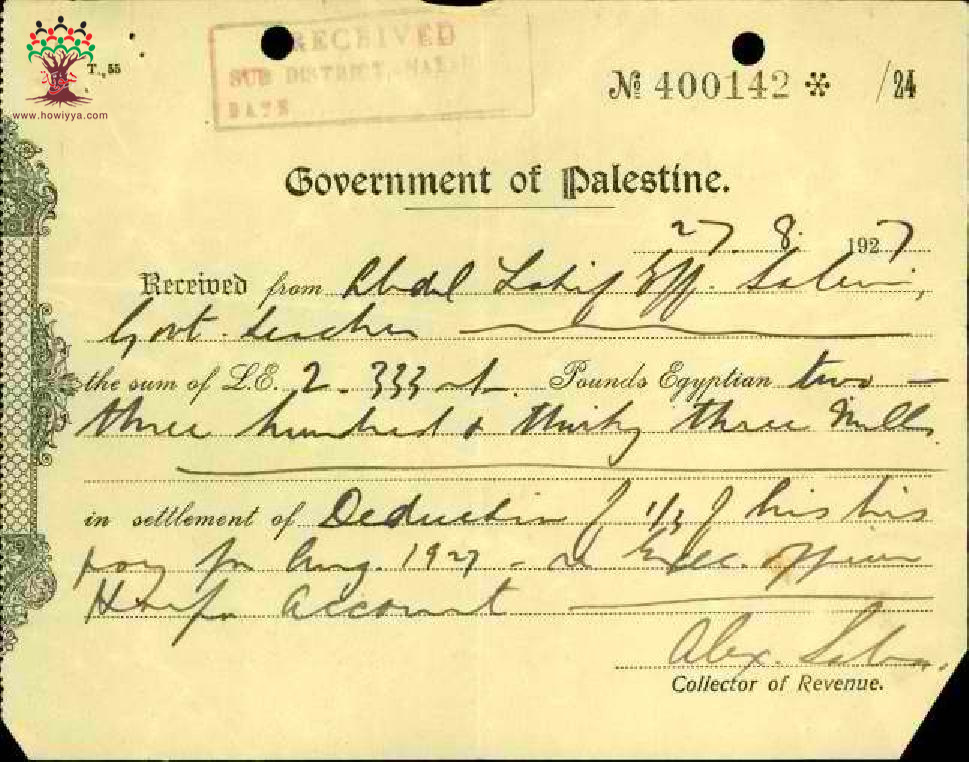 www.howiyya.com
T. 55
RECEIVED
SUB DISTRICT,
DATE
№ 400142 /24
Government of Palestine.
27. 8. 1927
Received from Abdel Latif Eff.
Govt. teacher
the sum of L.E. 2.333 Pounds Egyptian two -
three hundred & thirty three Mills
in settlement of Deduction of 1/3 of his his
pay for Aug. 1927 - Exec. officer
Haifa account
Alex.
Collector of Revenue.